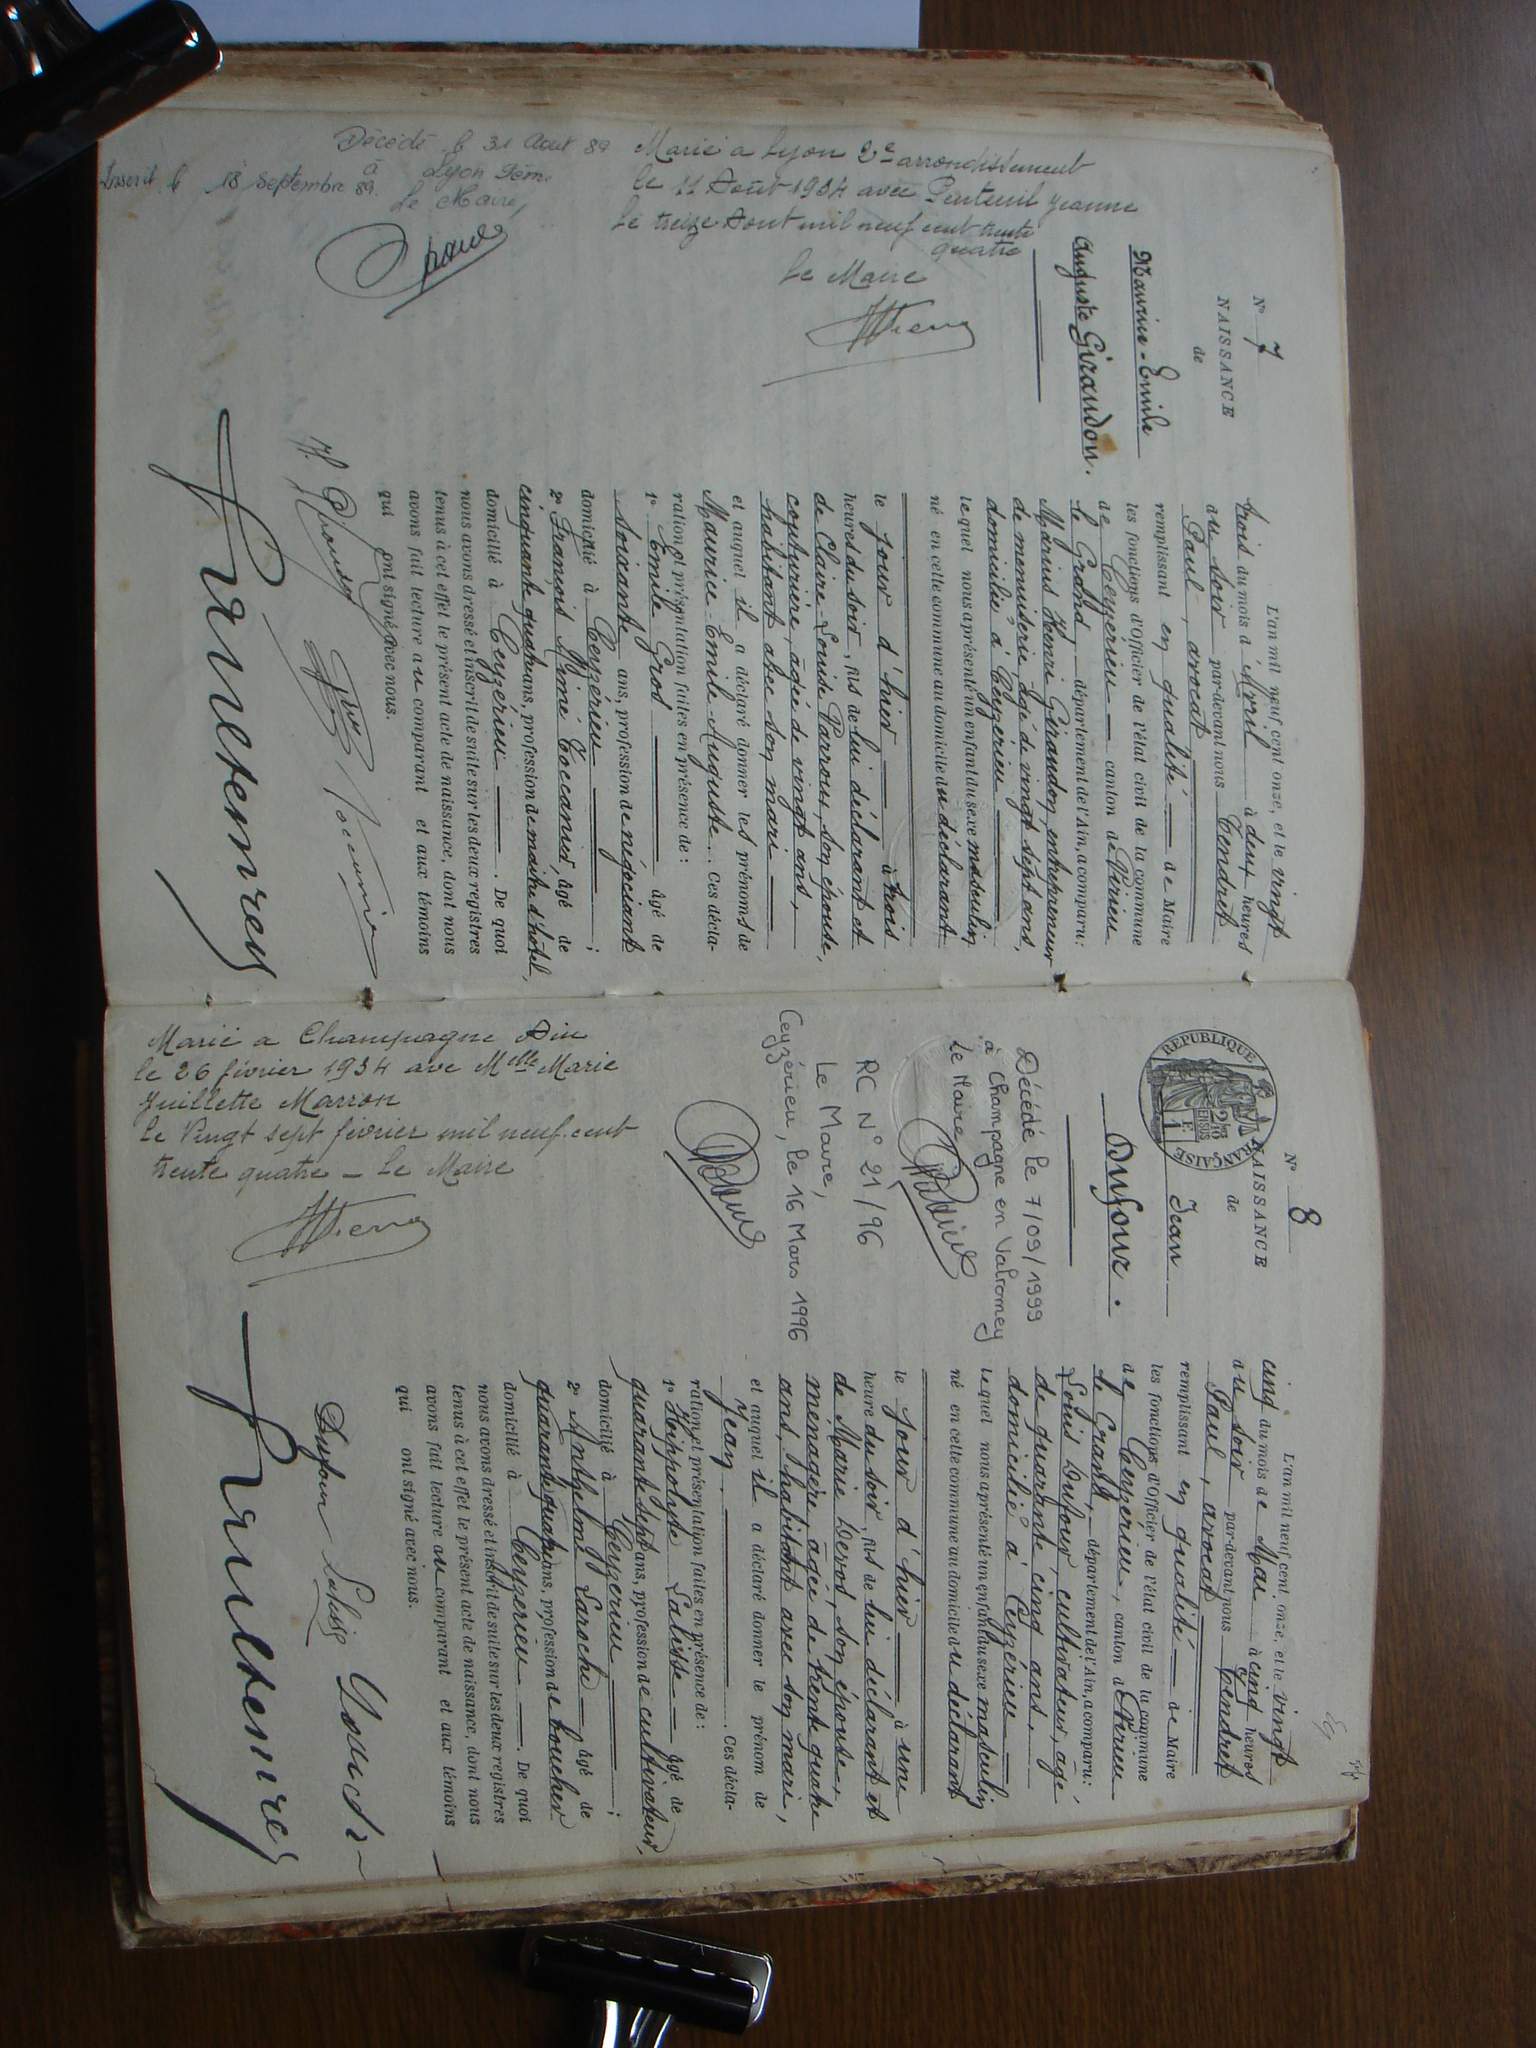 N° 7
NAISSANCE
de
Maurice-Emile
Auguste Giraudon.
Marié a Lyon 2e arrondissement
le 11 Août 1934 avec Penteuil Jeanne
Le treize Aout mil neuf cent trente
quatre
Le Maire
Décédé le 31 Aout 89
à Lyon
Inscrit le 18 Septembre 89.
Le Maire,
L'an mil neuf cent onze, et le vingt
trois du mois d'Avril à deux heures
au soir par-devant nous Tendret
Paul, avocat,
remplissant en qualité de Maire
les fonctions d'Officier de l'état civil de la commune
de Ceyzérieu canton de Virieu
le Grand, département de l'Ain, a comparu:
Marius Henri Giraudon, entrepreneur
de menuiserie âgé de vingt sept ans,
domicilié à Ceyzérieu
lequel nous a présenté un enfant du sexe masculin
né en cette commune au domicile du déclarant
le jour d'hier à trois
heures du soir, fils de lui déclarant et
de Claire-Louise Parrous, son épouse,
couturière, âgée de vingt ans,
habitant avec son mari
et auquel il a déclaré donner les prénoms de
Maurice-Emile-Auguste. Ces décla-
ration et présentation faites en présence de:
1° Emile Gros âgé de
soixante ans, profession de négociant
domicilié à Ceyzérieu ;
2° François Aimé Coccanier, âgé de
cinquante quatre ans, profession de maître d'hôtel,
domicilié à Ceyzérieu. De quoi
nous avons dressé et inscrit de suite sur les deux registres
tenus à cet effet le présent acte de naissance, dont nous
avons fait lecture au comparant et aux témoins
qui ont signé avec nous.
N° 8
NAISSANCE
de
RÉPUBLIQUE FRANÇAISE
Jean
Dufour.
Décédé le 7/09/1999
à Champagne en Valromey
Le Maire
RC N° 21/96
Le Maire,
Ceyzérieu, le 16 Mars 1996
Marié a Champagne Ain
le 26 février 1934 ave Melle Marie
Juillette Marron
Le Vingt sept février mil neuf cent
trente quatre – Le Maire
L'an mil neuf cent onze, et le vingt
cinq du mois de Mai à cinq heures
au soir par-devant nous Tendret
Paul, avocat
remplissant en qualité de Maire
les fonctions d'Officier de l'état civil de la commune
de Ceyzérieu, canton de Virieu
le Grand, département de l'Ain, a comparu:
Louis Dufour, cultivateur, âgé
de quarante cinq ans,
domicilié à Ceyzérieu
lequel nous a présenté un enfant du sexe masculin
né en cette commune au domicile du déclarant
le jour d'hier à une
heure du soir, fils de lui déclarant et
de Marie Devos, son épouse,
ménagère âgée de trente quatre
ans, habitant avec son mari,
et auquel il a déclaré donner le prénom de
Jean. Ces décla-
ration et présentation faites en présence de:
1° Hippolyte Lalisse âgé de
quarante sept ans, profession de cultivateur,
domicilié à Ceyzérieu ;
2° Anthelme Larache âgé de
quarante quatre ans, profession de boucher
domicilié à Ceyzérieu. De quoi
nous avons dressé et inscrit de suite sur les deux registres
tenus à cet effet le présent acte de naissance, dont nous
avons fait lecture au comparant et aux témoins
qui ont signé avec nous.
Dufour